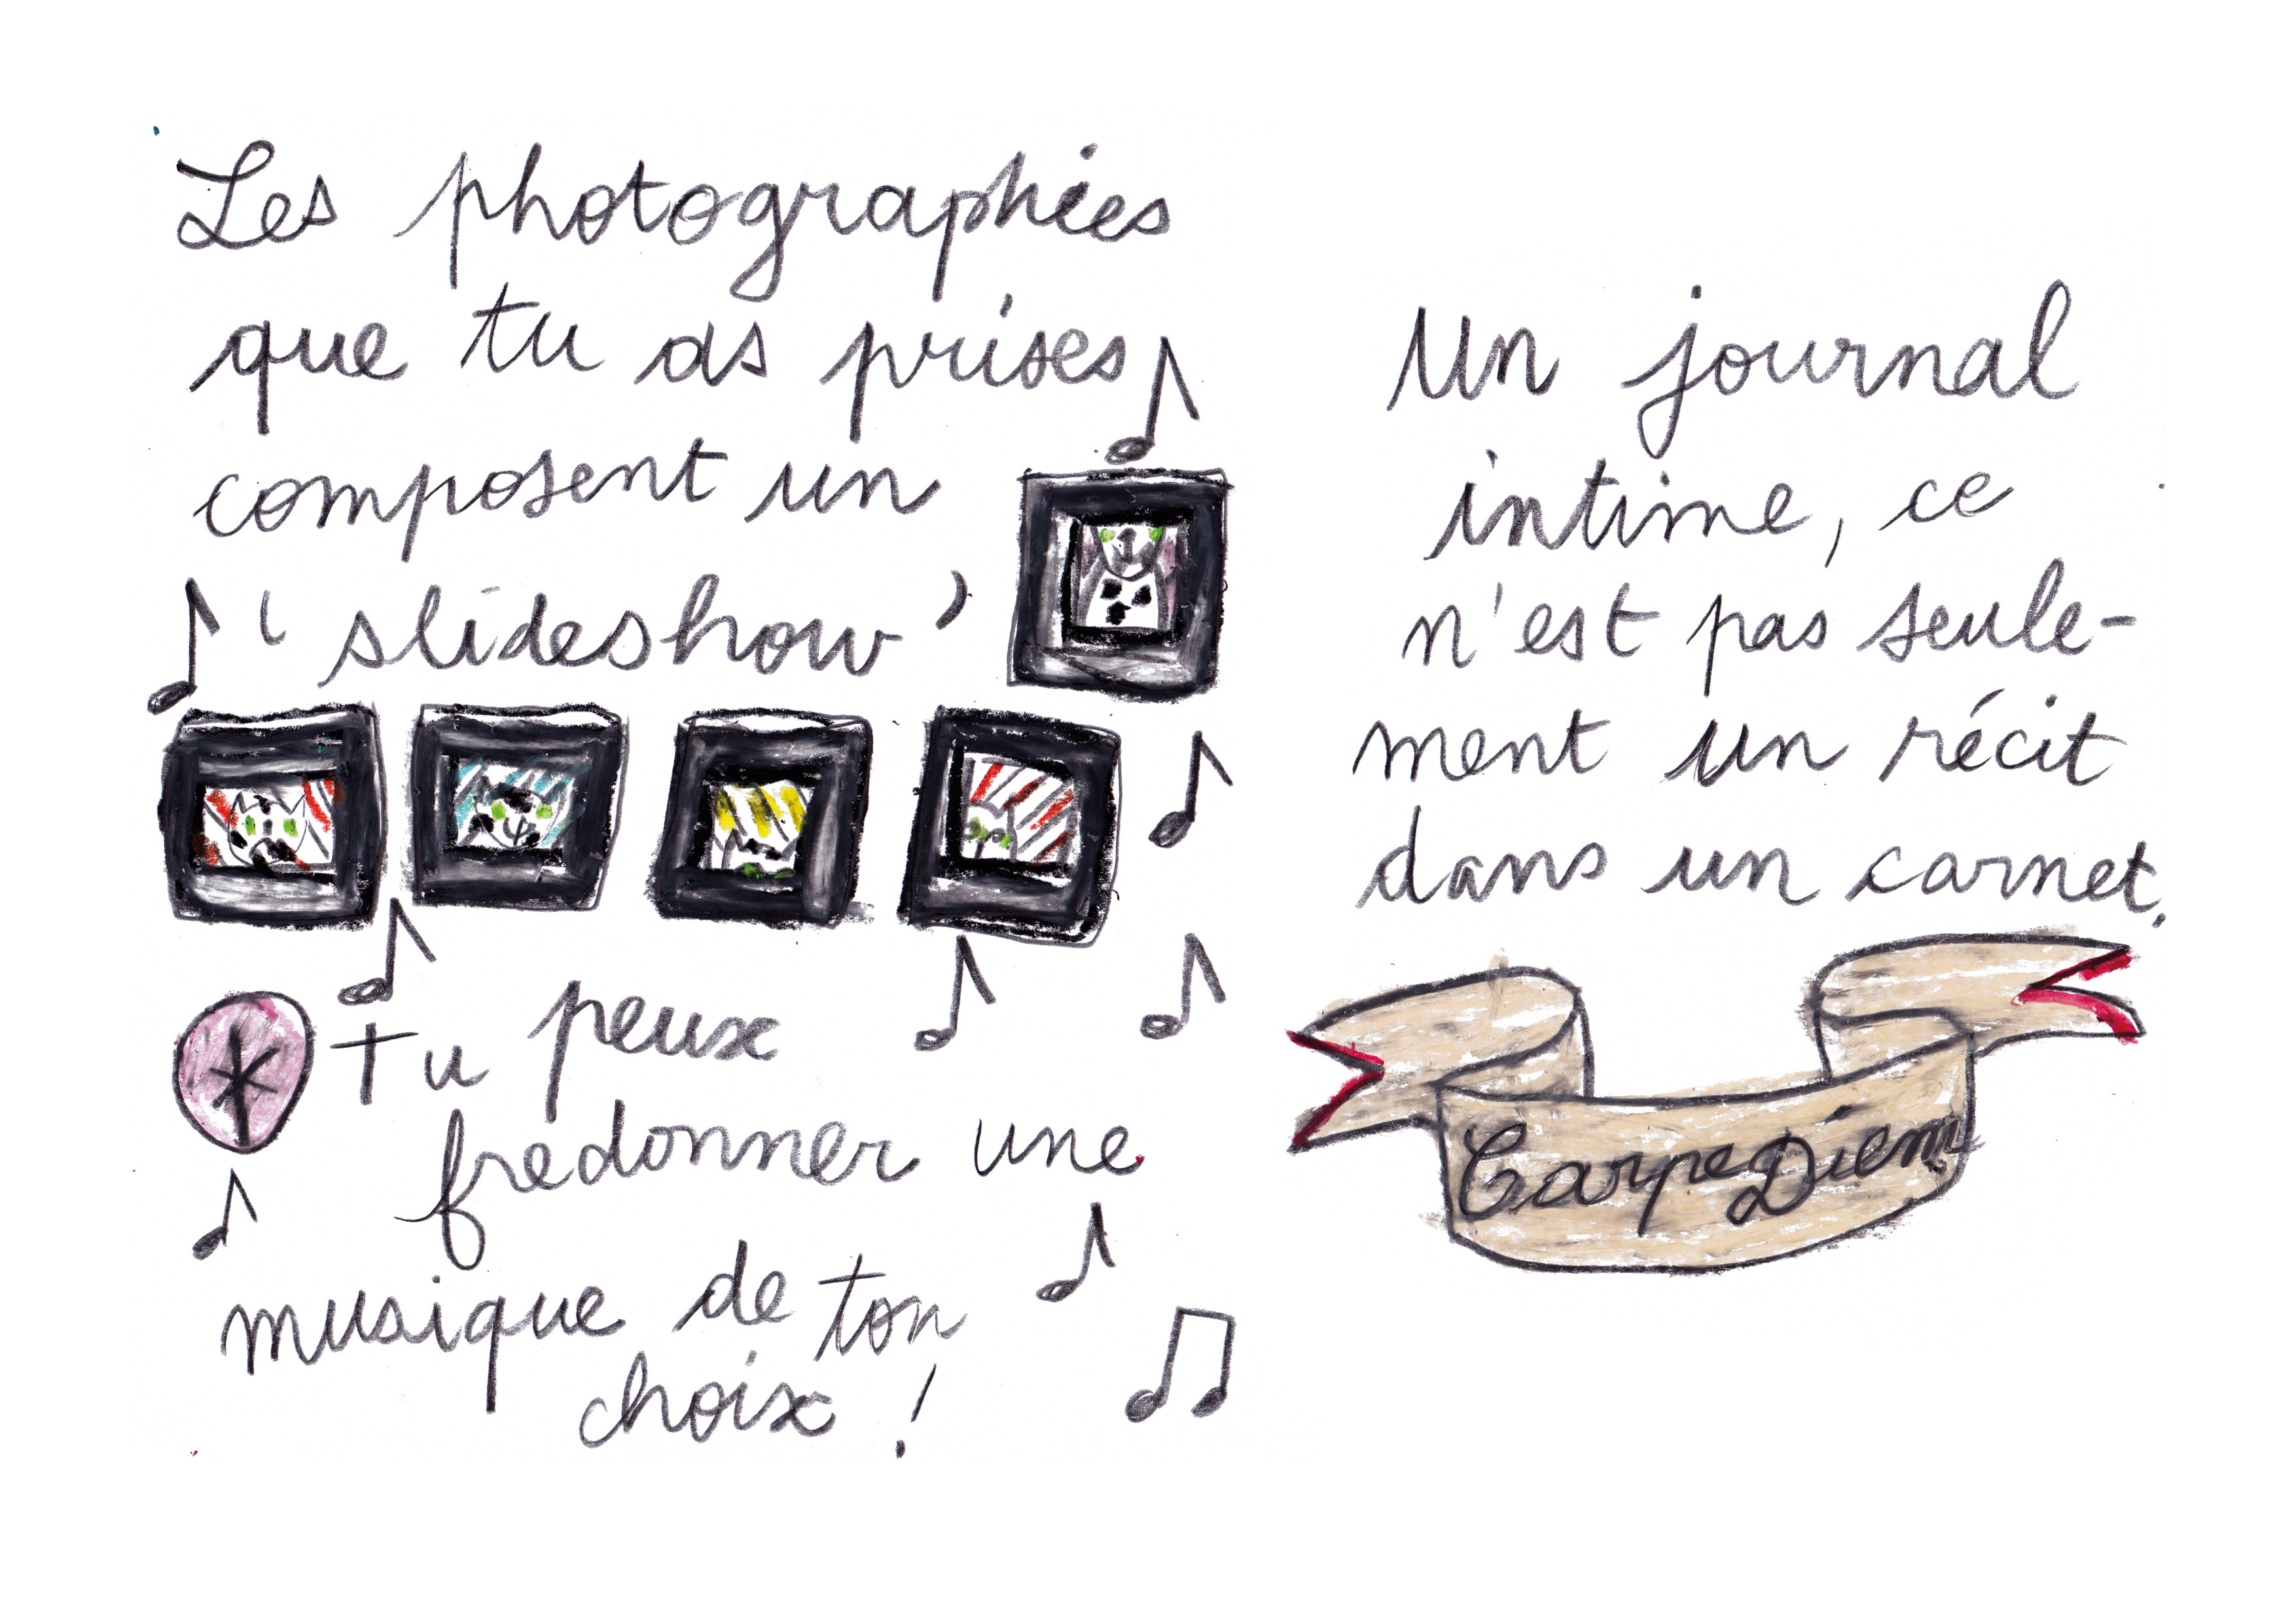 Les photographies
que tu as prises
composent un
' slideshow '
* Tu peux
fredonner une
musique de ton
choix !
Un journal
intime, ce
n'est pas seule-
ment un récit
dans un carnet.
Carpe Diem